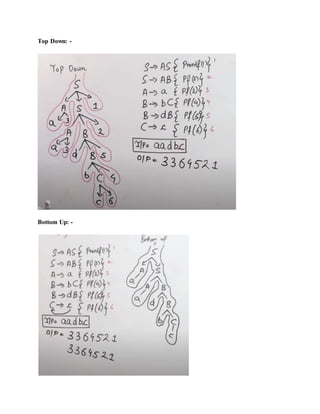 Top Down: -
Top Down
S
A S 1
a 3 A B 2
a 3 d B 5
b C 4
c 6
S→AS{ Printf(1)} 1
S→AB{ Pf(2)} 2
A→a { Pf(3)} 3
B→bC{ Pf(4)} 4
B→dB{ Pf(5)} 5
C→c { Pf(6)} 6
I/P= aadbc
O/P= 3364521
Bottom Up: -
Bottom up
S→AS{ Printf(1)} 1
S→AB{ Pf(2)} 2
A→a { Pf(3)} 3
B→bC{ Pf(4)} 4
B→dB{ Pf(5)} 5
C→c { Pf(6)} 6
I/P= aadbc
O/P= 3364521
3364521
S
A S
a A B
a d B
b C
c